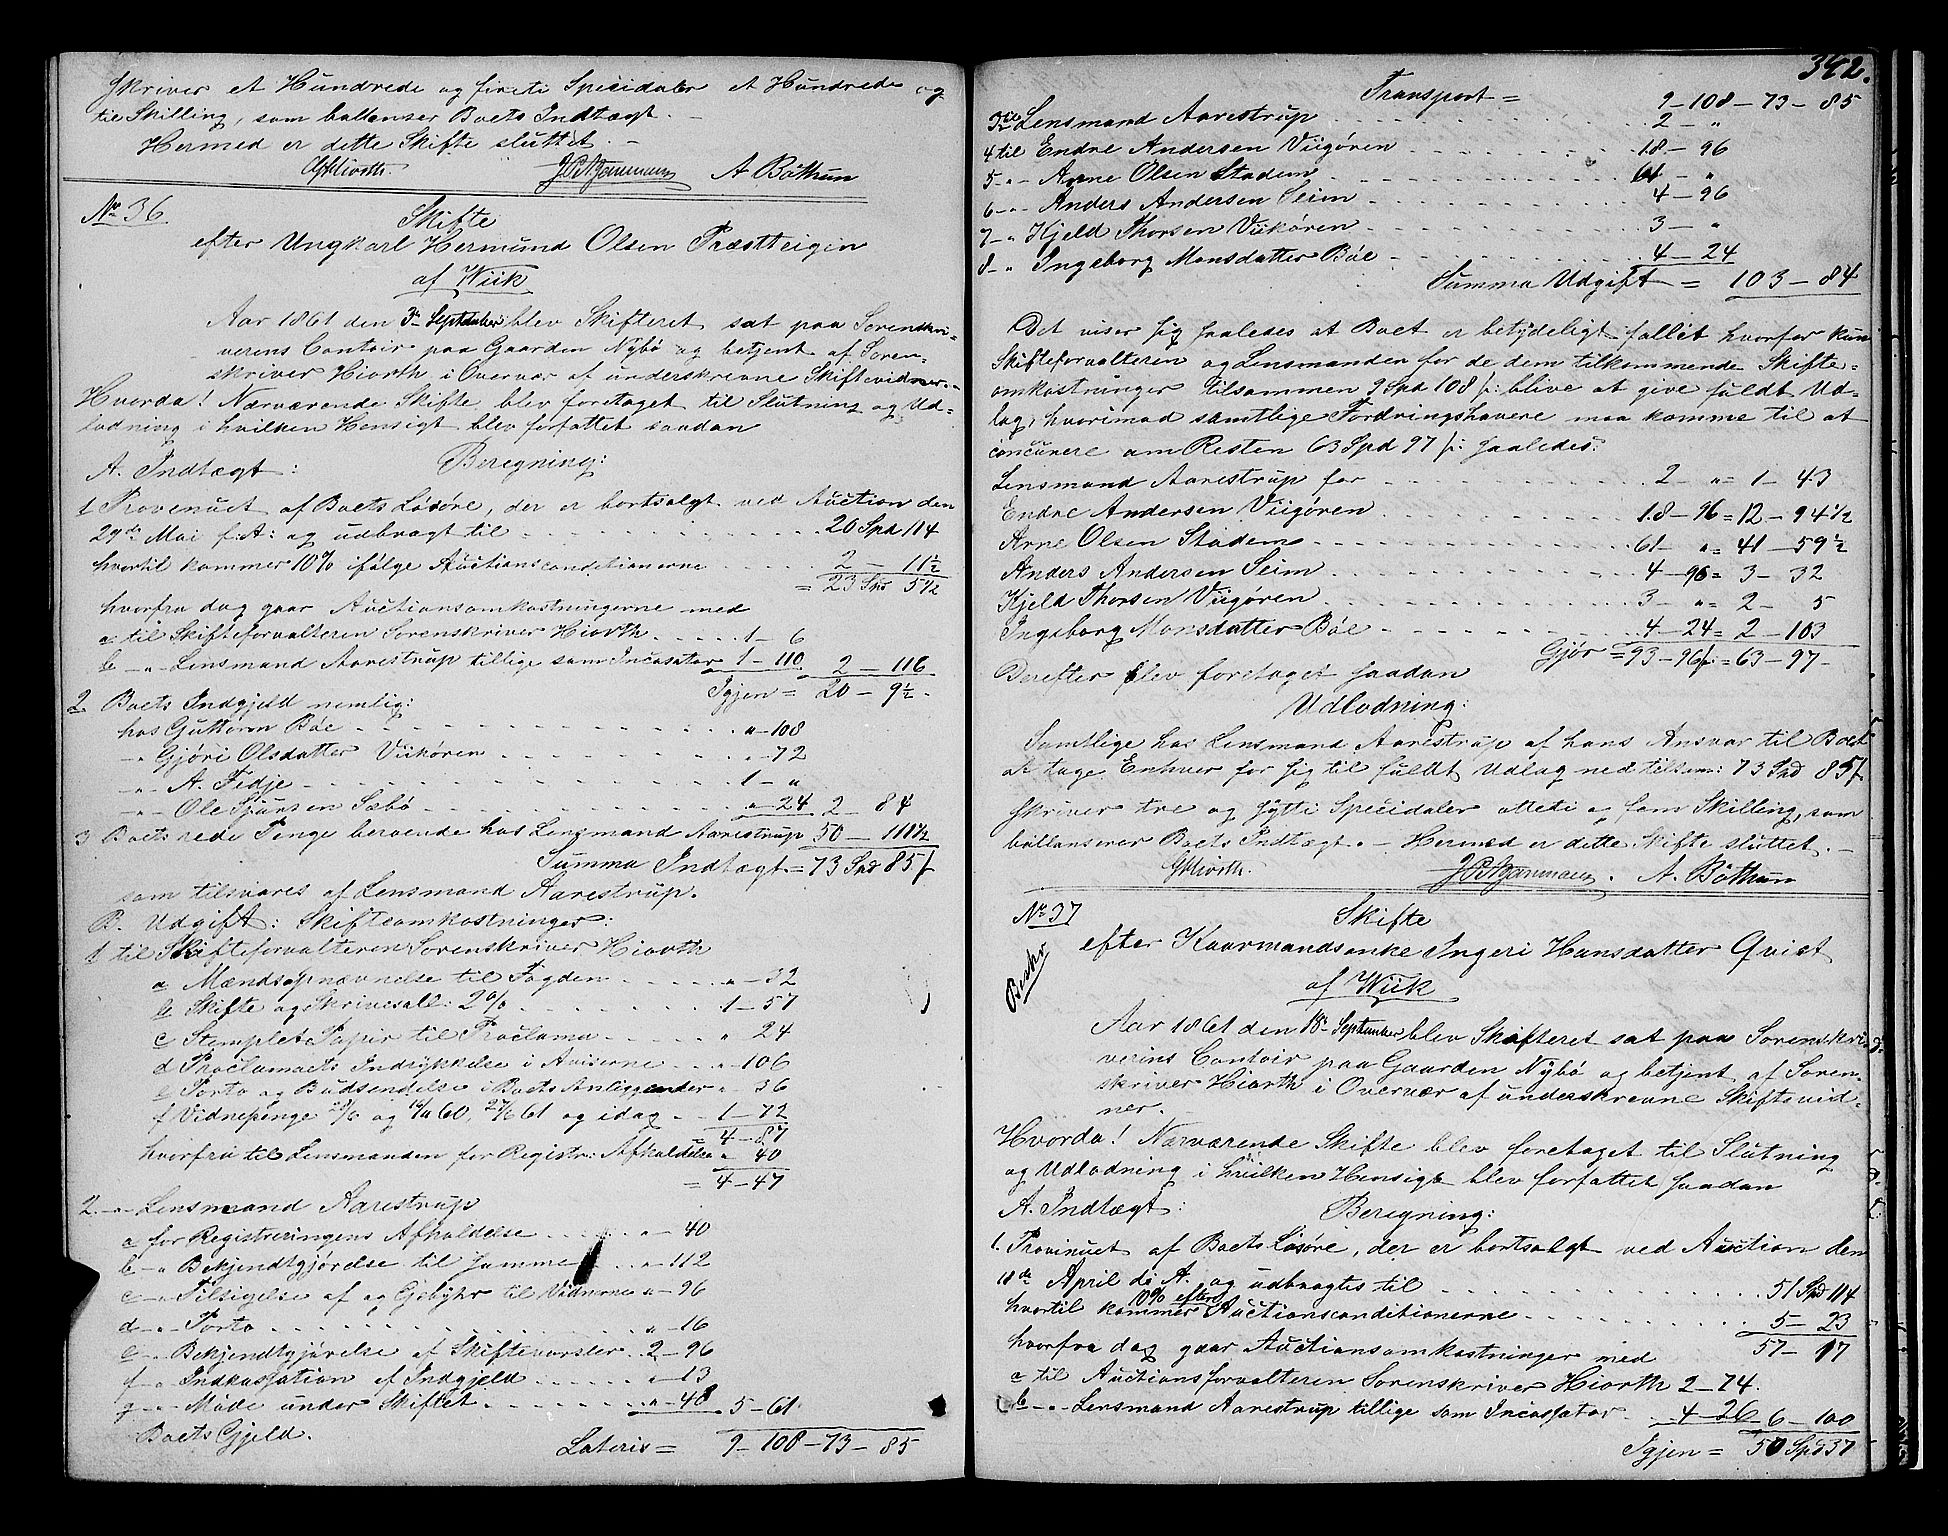 skriver et Hundrede og fireti Speciedaler et Hundrede og
til Skilling, som ballanser Boets Indtægt. –
Hermed er dette Skifte sluttet. –
GHiorth. A Böthun
No 36.
Skifte
efter Ungkarl Hermund Olsen Præstteigen
af Wiik
Aar 1861 den 3die September blev Skifteret sat paa Sorenskri-
verens Contoir paa Gaarden Nybø og betjent af Soren-
skriver Hiorth i Overvær af underskrevne Skiftevidner. –
Hvorda! Nærværende Skifte blev foretaget til Slutning og Ud-
lodning i hvilken Hensigt blev forfattet saadan
A. Indtægt: Beregning:
1 Provenuet af Boets Løsøre, der er bortsolgt ved Auction den
29de Mai f. A: og udbragt til 20 Spd 114
hvortil kommer 10% ifølge Auctionsconditionerne 2 – 11½
= 23 Spd 5½
hvorfra dog gaar Auctionsomkostningerne med
a til Skifteforvalteren Sorenskriver Hiorth 1 – 6
b – „ – Lensmand Aarestrup tillige som Incasator 1 – 110 2 – 116
Igjen = 20 – 9½.
2 Boets Indgjeld nemlig:
hos Guttorm Bøe „ – 108
– „ Gjøri Olsdatter Viikøren „ – 72
– „ A. Fidje 1 – „
– „ Ole Sjursen Sæbø „ – 24 2 – 84
3 Boets rede Penge beroende hos Lensmand Aarestrup 50 – 111½
Summa Indtægt = 73 Spd 85 ſ
som tilsvares af Lensmand Aarestrup.
B. Udgift: Skifteomkostninger:
1 til Skifteforvalteren Sorenskriver Hiorth
a Mændsopnævnelse til Fogden „ – 32
b Skifte og Skrivesall: 2% 1 – 57
c Stemplet Papir til Proclama „ 24
d Proclamaets Indrykkelse i Aviserne „ – 106
e Porto og Budsendelse i Boets Anliggender „ – 36
f Vidnepenge og 60, 61 og idag 1 – 72
4 – 87
hvorfra til Lensmanden for Registr: Afholdelse „ 40
= 4 – 47
2 – „ – Lensmand Aarestrup
a for Registreringens Afholdelse „ – 40
b – „ Bekjendtgjørelse til Samme „ – 112
c – „ – Tilsigelse af og Gebyhr til Vidnerne „ – 96
d – „ – Porto „ – 16
e – „ – Bekjendtgjørelse af Skiftevarsler 2 – 96
f – „ Indkassation af Indgjeld „ – 13
g – „ – Møde under Skiftet „ – 48 5 – 61
Boets Gjeld. Lateris = 9 – 108 – 73 – 85
342.
Transport = 9 – 108 – 73 – 85
3 til Lensmand Aarestrup 2 – „
4 til Endre Andersen Viigøren 18 – 96
5 – „ – Arne Olsen Stadem 61 – „
6 – „ – Anders Andersen Seim 4 – 96
7 – „ Kjeld Thorsen Viikøren 3 – „
8 – „ Ingeborg Monsdatter Bøe 4 – 24
Summa Udgift = 103 – 84
Det viser sig saaledes at Boet er betydeligt fallit hvorfor kun
Skifteforvalteren og Lensmanden for de dem tilkommende Skifte-
omkostninger tilsammen 9 Spd 108 ſ: blive at give fuldt Ud-
læg, hvorimod samtlige Fordringshavere maa komme til at
concurere om Resten 63 Spd 97 ſ: saaledes:
Lensmand Aarestrup for 2 – „ = 1 – 43
Endre Andersen Viigøren 18 – 96 = 12 – 94½
Arne Olsen Stadem 61 – „ = 41 – 59½
Anders Andersen Seim 4 – 96 = 3 – 32
Kjeld Thorsen Viigøren 3 – „ = 2 – 5
Ingeborg Monsdatter Bøe 4 – 24 = 2 – 103
Gjør = 93 – 96 ſ: = 63 – 97 –
Derefter blev foretaget saadan
Udlodning:
Samtlige hos Lensmand Aarestrup af hans Ansvar til Boet
at tage Enhver for sig til fuldt Udlæg med tilsam: 73 Spd 85 ſ
skriver tre og sytti Speciedaler otteti og fem Skilling, som
ballanserer Boets Indtægt. – Hermed er dette Skifte sluttet. –
GHiorth. A. Böthun
No 37 Skifte
efter Kaarmandsenke Ingeri Hansdatter Qvist
af Wiik
Aar 1861 den 18de September blev Skifteret sat paa Sorenskri-
verens Contoir paa Gaarden Nybø og betjent af Soren-
skriver Hiorth i Overvær af underskrevne Skiftevid-
ner.
Hvorda! Nærværende Skifte blev foretaget til Slutning
og Udlodning i hvilken Hensigt blev forfattet saadan
A. Indtægt: Beregning:
1. Provinuet af Boets Løsøre, der er bortsolgt ved Auction den
18de April d: A. og udbragtes til 51 Spd 114
hvortil kommer 10% efter Auctionsconditionerne 5 – 23
57 – 17
hvorfra dog gaar Auctionsomkostninger med
a til Auctionsforvalteren Sorenskriver Hiorth 2 – 74.
b – „ – Lensmand Aarestrup tillige som Incassator 4 – 26 6 – 100
Igjen = 50 Spd 37